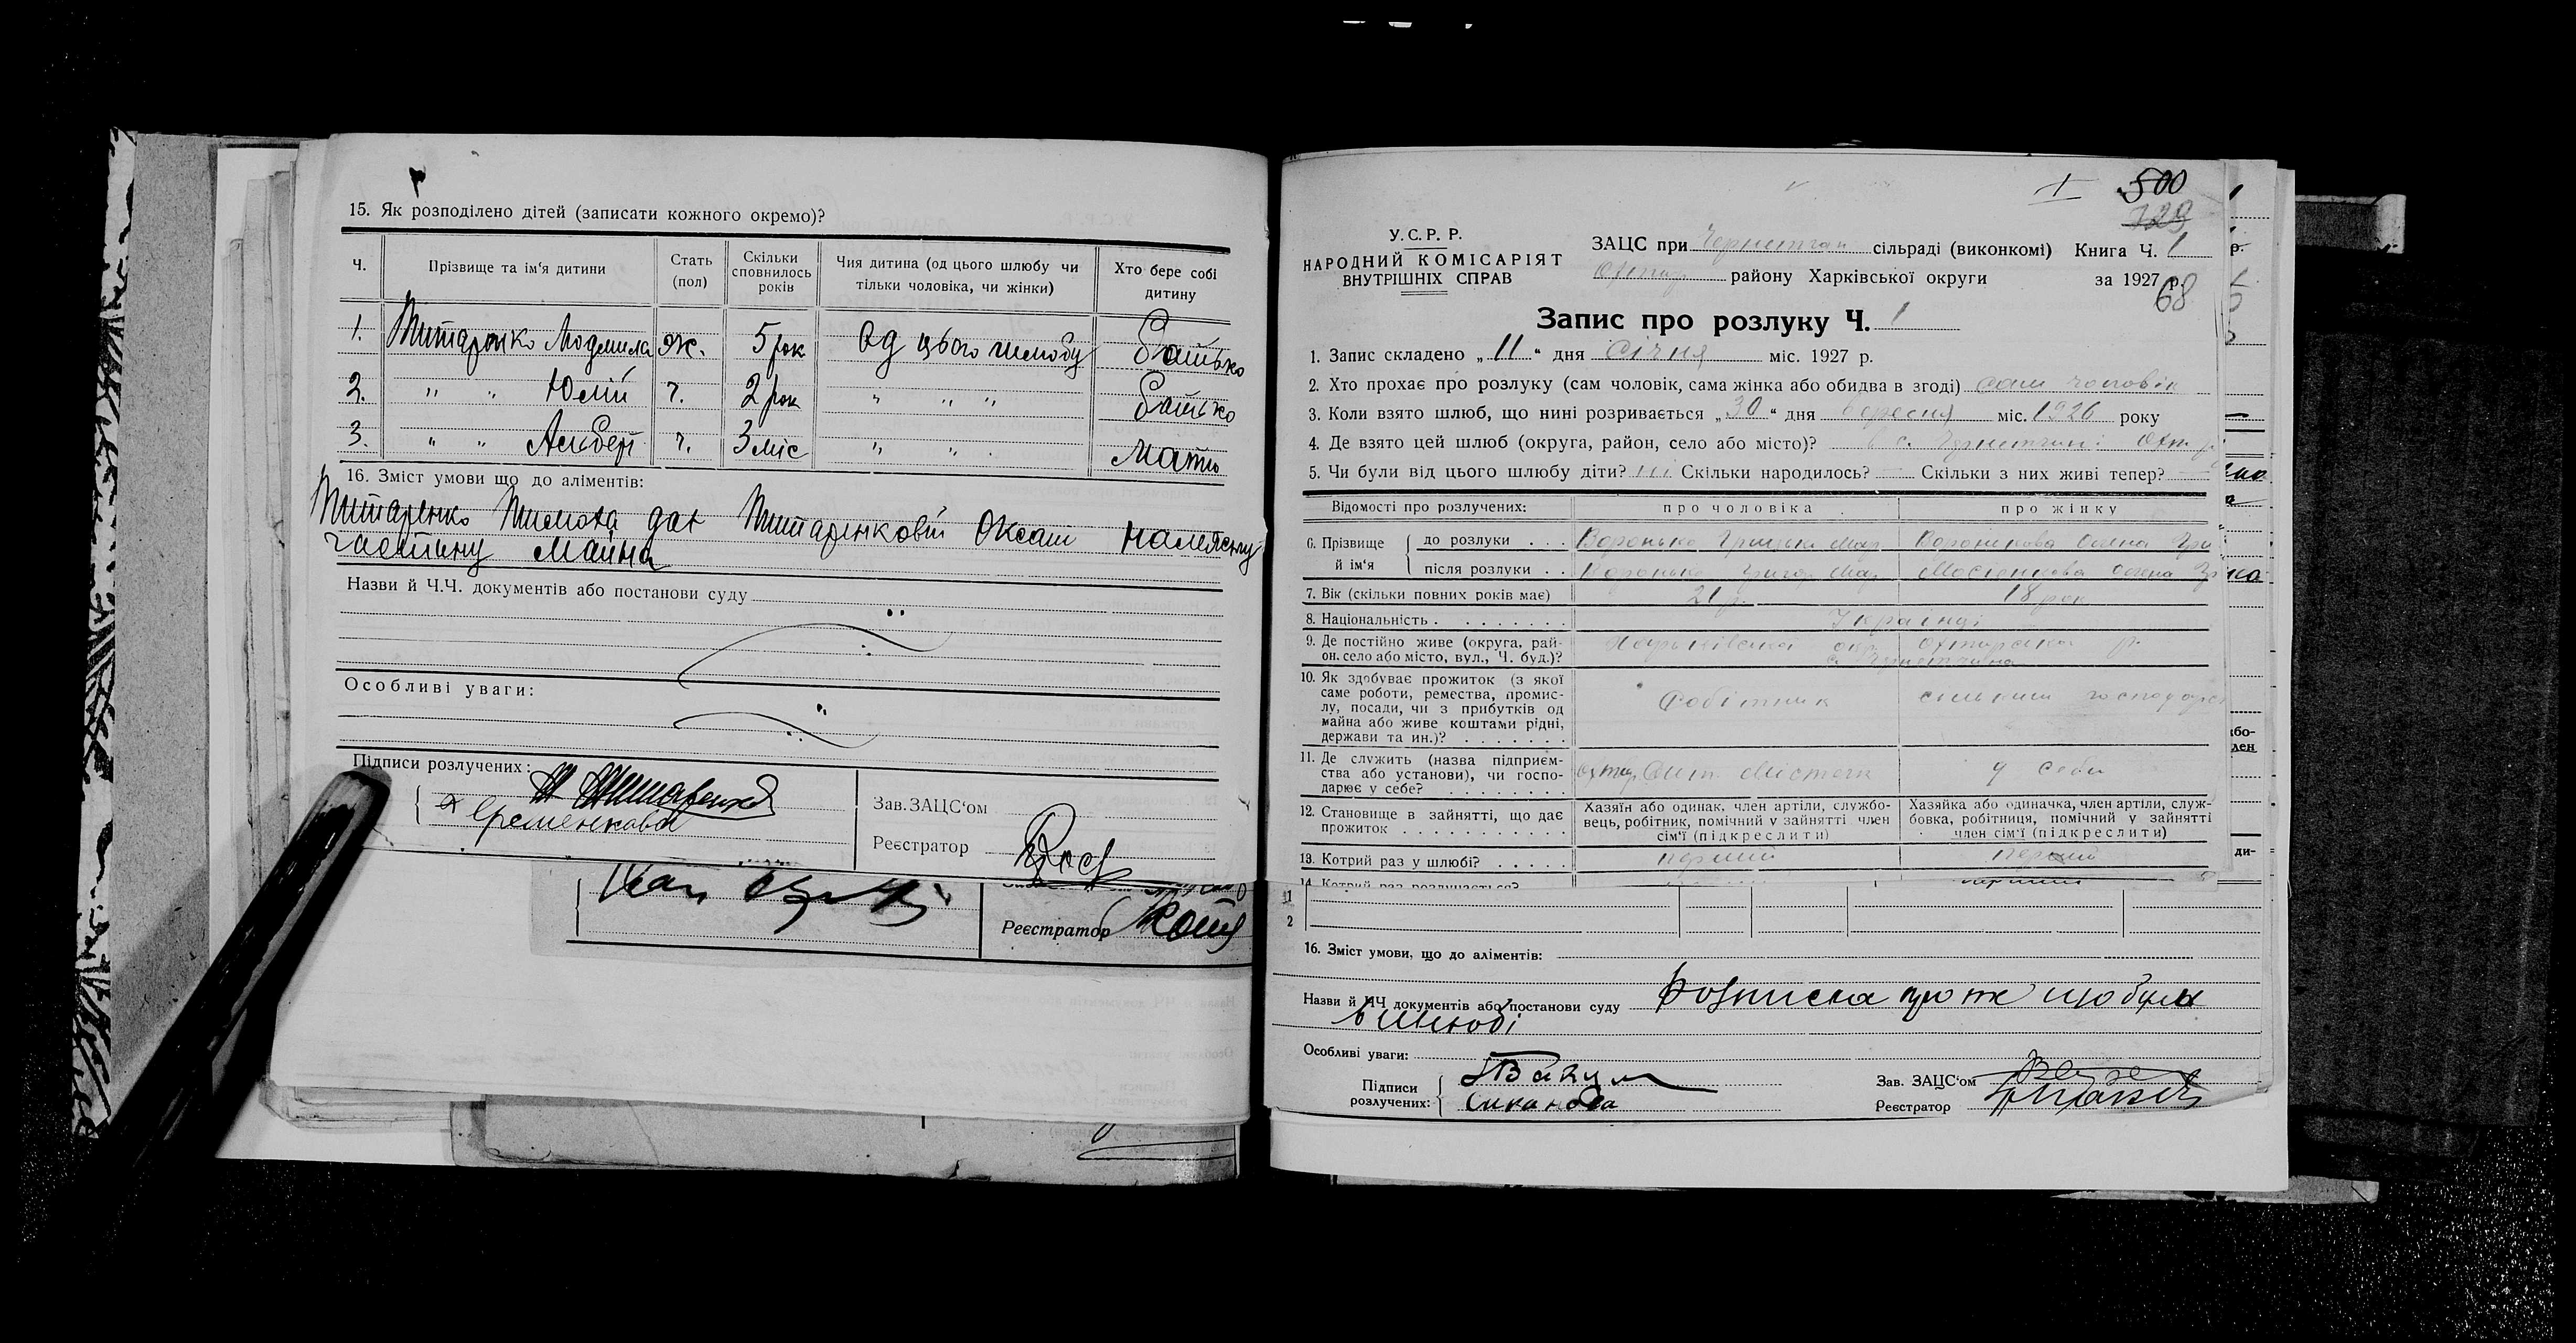 15. Як розподілено дітей (записати кожного окремо)?
Ч. Прізвище та ім'я дитини Стать (пол) Скільки сповнилось років Чия дитина (од цього шлюбу чи тільки чоловіка, чи жінки) Хто бере собі дитину
1. Титаренко Людмила ж. 5 рок Од цього шлюбу Батько
2. " " Юлій ч. 2 рок " " " Батько
3. " " Альберт ч. 3 міс " " Мати
16. Зміст умови що до аліментів:
Титаренко дає Титаренковій Оксані належну
частину майна
Назви й Ч.Ч. документів або постанови суду
Особливі уваги:
Підписи розлучених:
Титаренко
Єременкова
Зав. ЗАЦС'ом
Реєстратор
Реєстратор
500
729
У.С.Р.Р.
НАРОДНИЙ КОМІСАРІЯТ
ВНУТРІШНІХ СПРАВ
ЗАЦС при сільраді (виконкомі) Книга Ч. 1
Охтир району Харківської округи за 1927 р.
68
Запис про розлуку Ч. 1
1. Запис складено „11" дня Січня міс. 1927 р.
2. Хто прохає про розлуку (сам чоловік, сама жінка або обидва в згоді) сам чоловік
3. Коли взято шлюб, що нині розривається „30" дня вересня міс. 1926 року
4. Де взято цей шлюб (округа, район, село або місто)? в с. Охт. р
5. Чи були від цього шлюбу діти? ні Скільки народилось? Скільки з них живі тепер?
Відомості про розлучених: про чоловіка про жінку
6. Прізвище й ім'я
до розлуки . . . Воронько Грицько Мар Воронькова Олена Гри
після розлуки . . Воронько Григор Мар Олена Гр
7. Вік (скільки повних років має) 21 р. 18 рок
8. Національність . . . . . . . . Українці
9. Де постійно живе (округа, рай-
он. село або місто, вул., Ч. буд.)? Харьківська окр Охтирська р.
10. Як здобуває прожиток (з якої
саме роботи, ремества, промис-
лу, посади, чи з прибутків од
майна або живе коштами рідні,
держави та ин.)? . . . . . . . Робітник сільським господарст
11. Де служить (назва підприєм-
ства або установи), чи госпо-
дарює у себе? . . . . . . . . у себе
12. Становище в зайнятті, що дає
прожиток . . . . . . . . . . .
Хазяїн або одинак, член артіли, службо-
вець, робітник, помічний у зайнятті член
сім'ї (підкреслити)
Хазяйка або одиначка, член артіли, служ-
бовка, робітниця, помічний у зайнятті
член сім'ї (підкреслити)
13. Котрий раз у шлюбі? . . . . . перший перший
14. Котрий раз розлучається?
1
2
16. Зміст умови, що до аліментів:
Назви й ЧЧ документів або постанови суду Розписка про те що були
в шлюбі
Особливі уваги:
Підписи розлучених:
Бакум
Зав. ЗАЦС'ом
Реєстратор